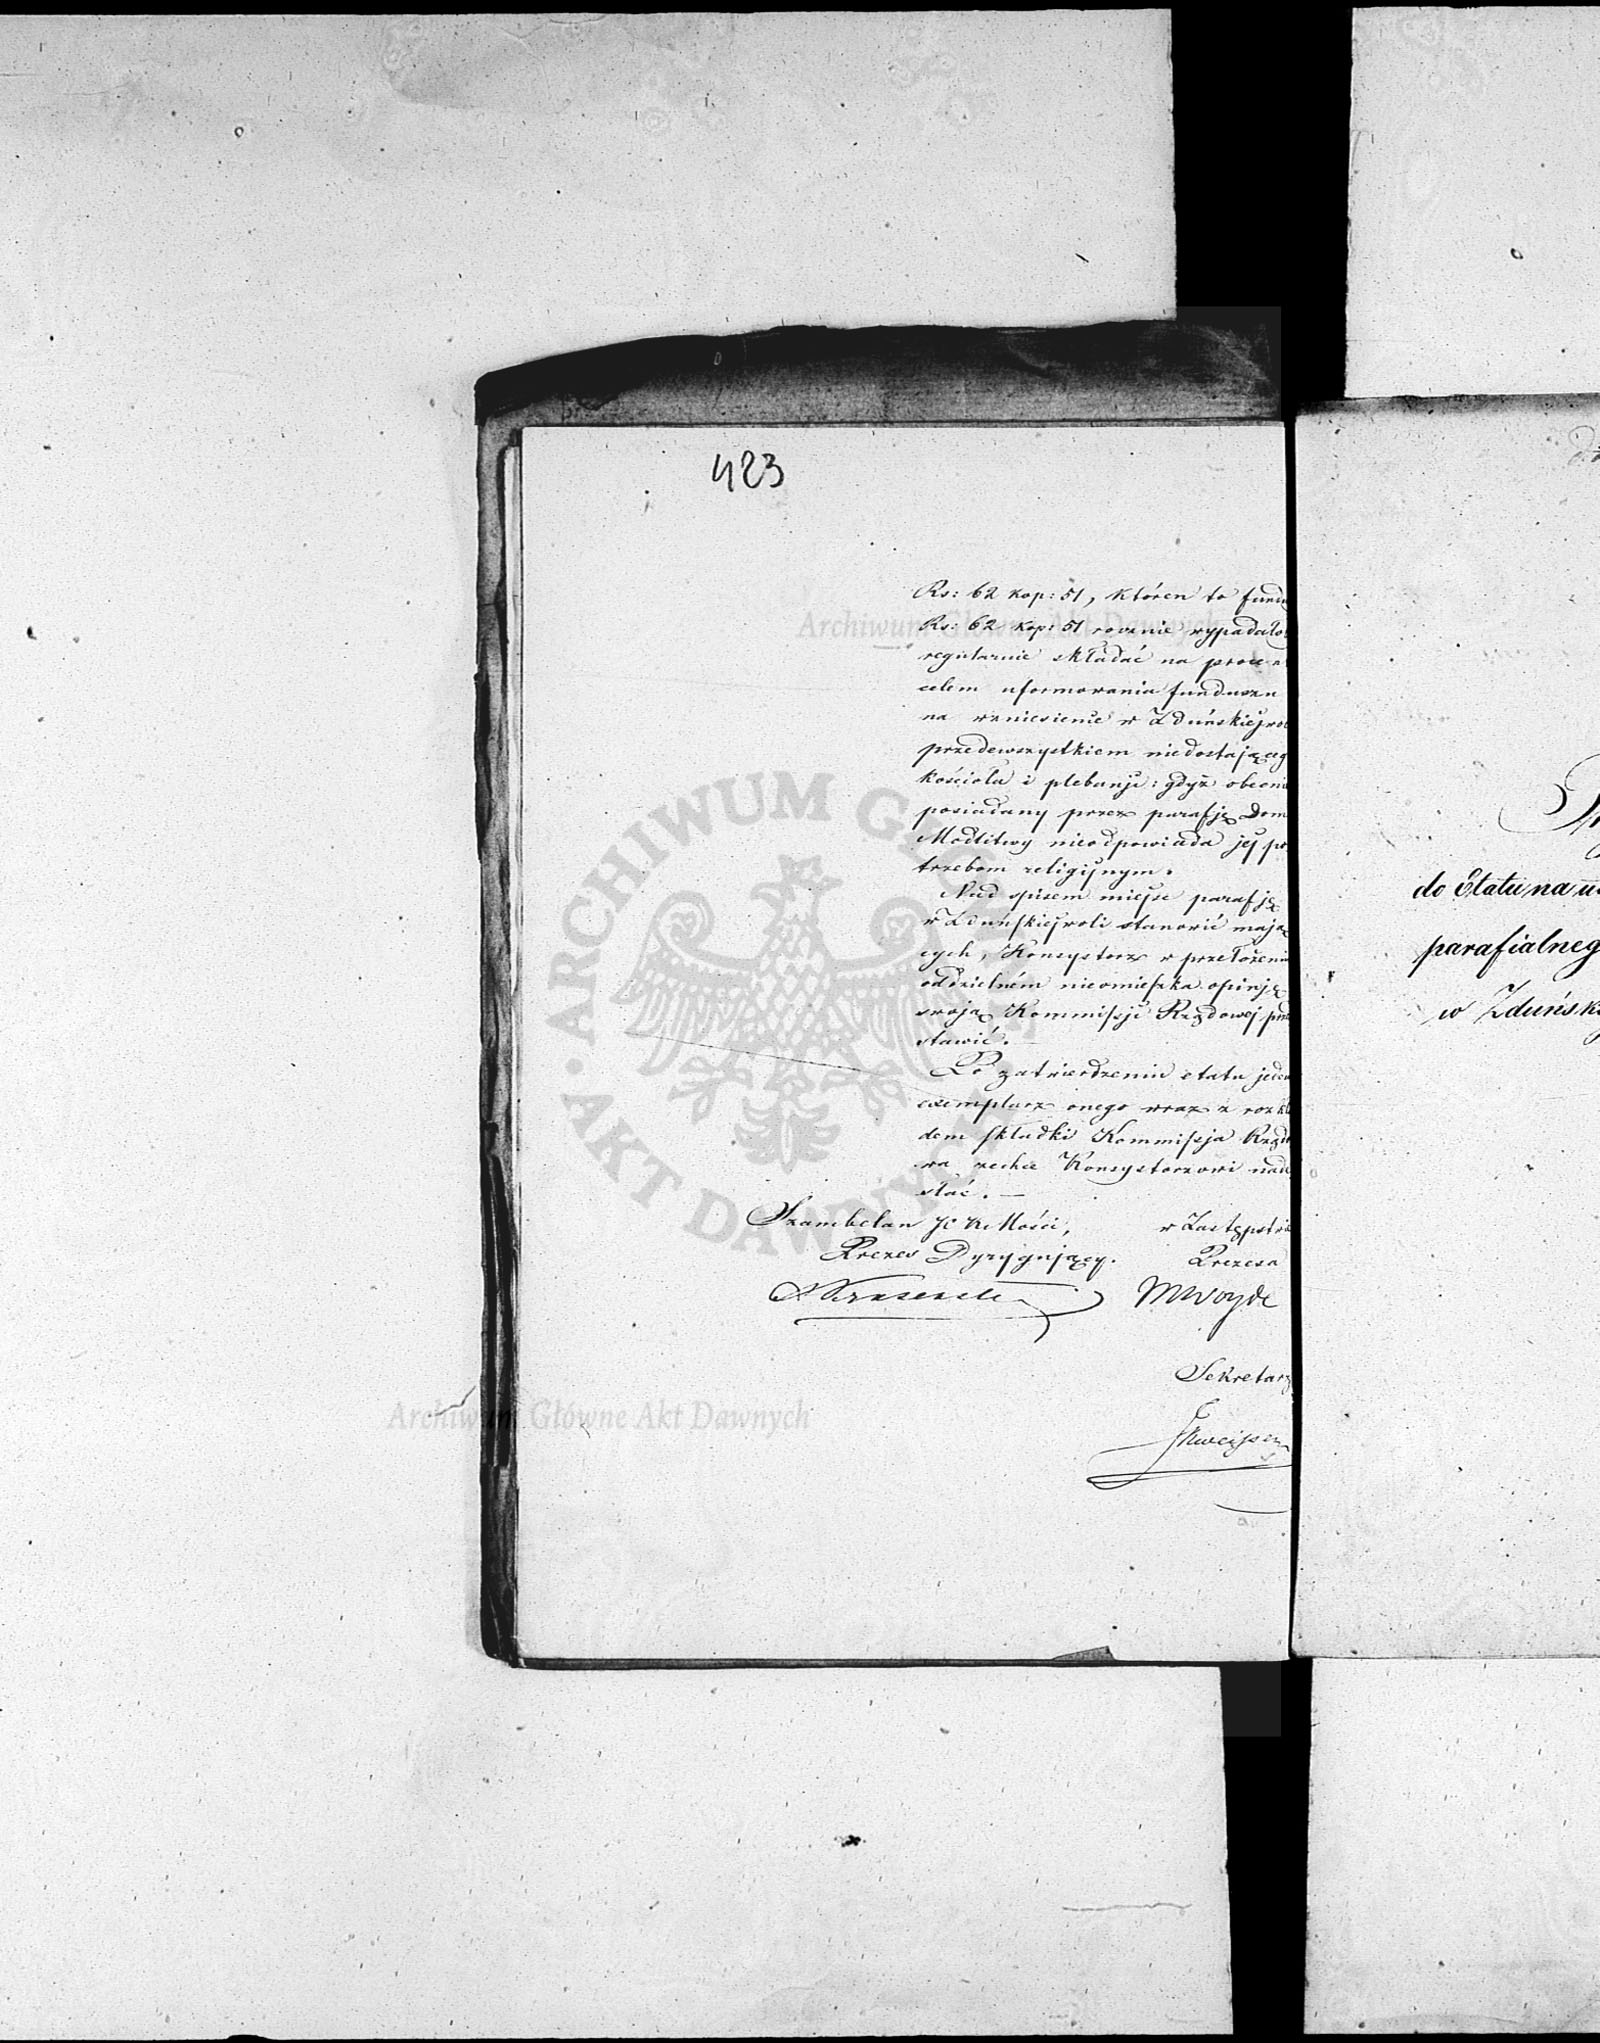 423
Rs: 62 kop: 51, któren to fundu
Rs: 62 kop: 51 rocznie wypadało
regularnie składać na procen
celem uformowania funduszu
na wzniesienie w Zduńskiejwol
przedewszystkiem niedostająceg
kościoła i plebanji: gdyż obecni
posiadany przez parafję Dom
Modlitwy nieodpowiada jej po
trzebom religijnym.
Nad spisem miejsc parafję
w Zduńskiejwoli stanowić mają
cych, Konsystorz w przełożeniu
oddzielném nieomieszka opinję
swoją Kommissji Rządowej prze
stawić.
Po zatwierdzeniu etatu jeden
exemplarz onego wraz z rozkła
dem składki Kommissja Rządo
wa zechce Konsystorzowi nade
słać. —
Szambelan JC KMości,
Prezes Dyrygujący.
w Zastępstwie
Prezesa
MWoyde
Sekretarz
do Etatu na u
parafialneg
w Zduńsk
ARCHIWUM GŁÓWNE AKT DAWNYCH
Archiwum Główne Akt Dawnych
Archiwum Główne Akt Dawnych